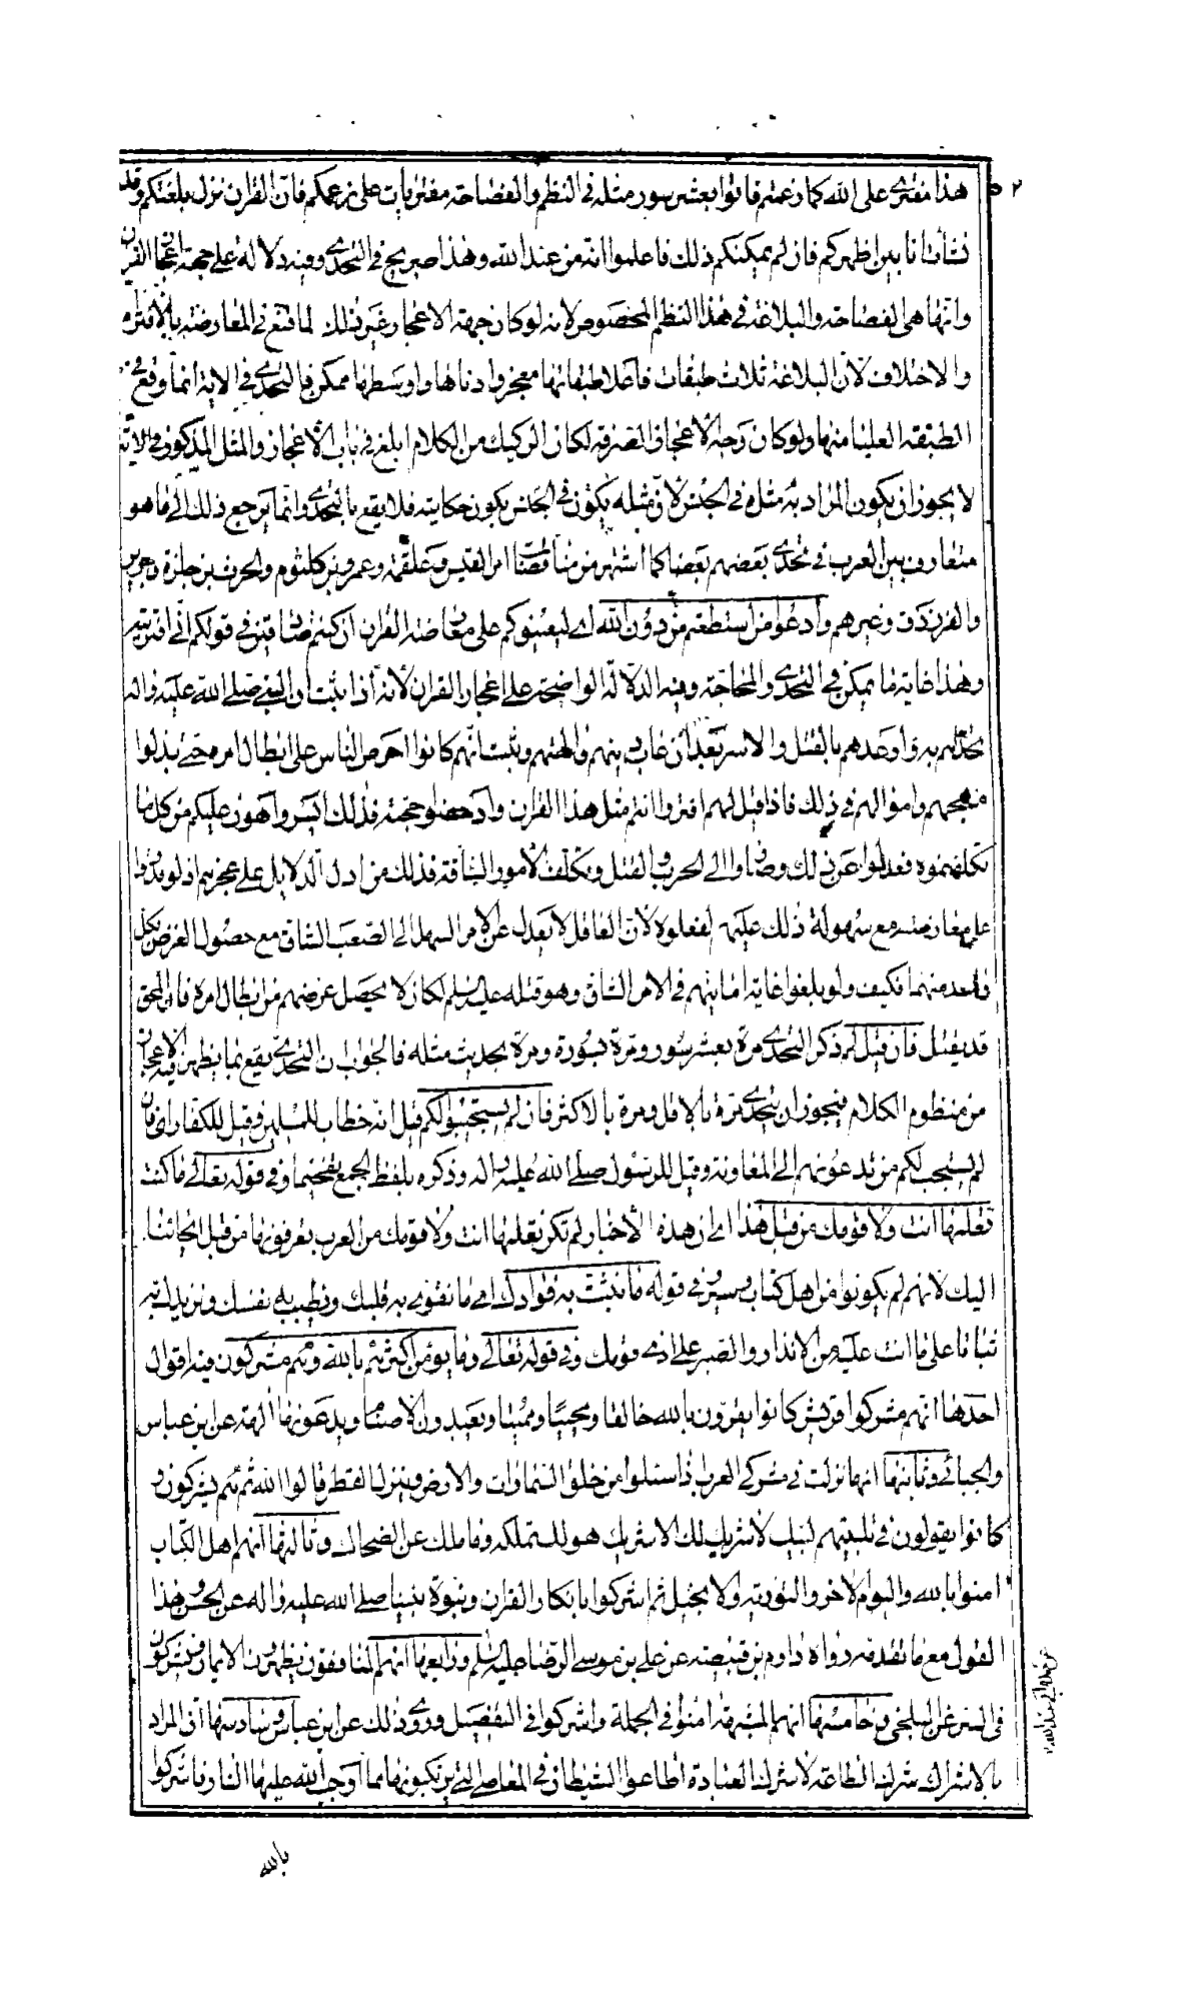 هذا مفترى على الله كما زعمتم فأتوا بعشر سور مثله في النظم والفصاحة مفتريات على زعمكم فان القران نزل بلغتكم وقد
نشأت انا بين اظهركم فان لم يمكنكم ذلك فاعلموا انه من عند الله وهذا صريح في التحدي وفيه دلالة على جهة اعجاز القران
وانها هي الفصاحة والبلاغة في هذا النظم المخصوص لانه لو كان جهة الاعجاز غير ذلك لما قنع في المعارضة بالافتراء
والاختلاف لان البلاغة ثلاث طبقات فاعلا طبقاتها معجز وادناها واوسطها ممكن فالتحدي في الاية انما وقع في
الطبقة العليا منها ولو كان وجه الاعجاز الصرفة لكان الركيك من الكلام ابلغ في باب الاعجاز والمثل المذكور في الاية
لا يجوز ان يكون المراد به مثله في الجنس لان مثله يكون في الجنس يكون حكايته فلا يقع بالتحدي وانما يرجع ذلك الى ما هو
متعارف بين العرب في تحدي بعضهم بعضا كما اشتهر من مناقضات امرء القيس وعلقمة وعمرو بن كلثوم والحرث بن حلزة وجرير
والفرزدق وغيرهم وادعوا من استطعتم من دون الله اي ليعينوكم على معارضة القران ان كنتم صادقين في قولكم اني افتريته
وهذا غاية ما يمكن في التحدي والمحاجة وفيه الدلالة الواضحة على اعجاز القران لانه اذا ثبت ان النبي صلى الله عليه واله
تحداهم به واوعدهم بالقتل والاسر بعد ان عاب دينهم والهتهم وثبت انهم كانوا احرص الناس على ابطال امره حتى بذلوا
مهجهم واموالهم في ذلك فاذا قيل لهم افتروا انتم مثل هذا القران وادحضوا حجته فذلك ايسر واهون عليكم من كل ما
تكلفتموه فعدلوا عن ذلك وصاروا الى الحرب والقتل وتكلف الامور الشاقة فذلك من ادل الدلايل على عجزهم اذ لو قدروا
على معارضته مع سهولة ذلك عليهم لفعلوه لان العاقل لا يعدل عن الامر السهل الى الصعب الشاق مع حصول الغرض بكل
واحد منهما فكيف ولو بلغوا غاية امانيهم في الامر الشاق وهو قتله عليه السلم لكان لا يحصل غرضهم من ابطال امره فان المحق
قد يقتل فان قيل لم ذكر التحدي مرة بعشر سور ومرة بسورة ومرة بحديث مثله فالجواب ان التحدي يقع بما يظهر فيه الاعجاز
من منظوم الكلام فيجوز ان يتحدى مرة بالاقل ومرة بالاكثر فان لم يستجيبوا لكم قيل انه خطاب للمسلمين وقيل للكفار اي فان
لم يستجب لكم من تدعونهم الى المعاونة وقيل للرسول صلى الله عليه واله وذكره بلفظ الجمع تفخيما وفي قوله تعالى ما كنت
تعلمها انت ولا قومك من قبل هذا اي ان هذه الاخبار لم تكن تعلمها انت ولا قومك من العرب يعرفونها من قبل ايحائنا
اليك لانهم لم يكونوا من اهل كتاب وسير وفي قوله ما نثبت به فؤادك اي ما نقوي به قلبك ونطيب به نفسك ونزيدك به
ثباتا على ما انت عليه من الانذار والصبر على اذى قومك وفي قوله تعالى وما يؤمن اكثرهم بالله الا وهم مشركون فيه اقوال
احدها انهم مشركوا قريش كانوا يقرون بالله خالقا ومحييا ومميتا ويعبدون الاصنام ويدعونها الهة عن ابن عباس
والجبائي وثانيها انها نزلت في مشركي العرب اذا سئلوا من خلق السماوات والارض وينزل القطر قالوا الله ثم هم يشركون و
كانوا يقولون في تلبيتهم لبيك لا شريك لك الا شريك هو لك تملكه وما ملك عن الضحاك وثالثها انهم اهل الكتاب
امنوا بالله واليوم الاخر والتورية والانجيل ثم اشركوا بانكار القران ونبوة نبينا صلى الله عليه واله عن الحسن وهذا
القول مع ما تقدمه رواه دارم بن قبيصة عن علي بن موسى الرضا عليه السلم ورابعها انهم المنافقون يظهرون الايمان ويشركون
في السر عن البلخي وخامسها انهم المشبهة امنوا في الجملة واشركوا في التفصيل وروي ذلك عن ابن عباس وسادسها ان المراد
بالاشراك شرك الطاعة لا شرك العبادة اطاعوا الشيطان في المعاصي التي يرتكبونها مما اوجب الله عليها النار فاشركوا
بالله